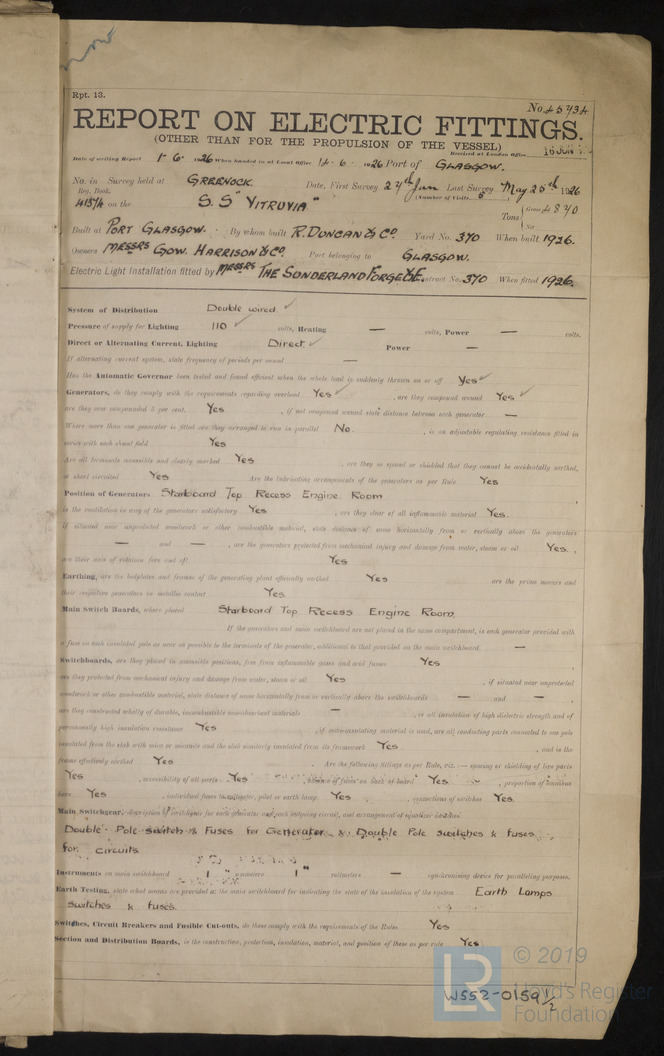 Rpt. 13.
No. 45734
REPORT ON ELECTRIC FITTINGS.
(OTHER THAN FOR THE PROPULSION OF THE VESSEL)
Received at London Office 16 JUN
Date of writing Report 1-6- 1926 When handed in at Local Office 14-6- 1926 Port of GLASGOW.
No. in Survey held at GREENOCK. Date, First Survey 27th Jan Last Survey May 25th 1926
Reg. Book. (Number of Visits 5)
41574 on the S.S "VITRUVIA" Tons Gross
Net
Built at PORT GLASGOW. By whom built R. DUNCAN & Co Yard No. 370 When built 1926.
Owners MESSRS GOW. HARRISON & Co. Port belonging to GLASGOW.
Electric Light Installation fitted by MESSRS THE SUNDERLAND FORGE & E. Contract No. 370 When fitted 1926.
System of Distribution Double wired
Pressure of supply for Lighting 110 volts, Heating — volts, Power — volts.
Direct or Alternating Current, Lighting Direct Power —
If alternating current system, state frequency of periods per second —
Has the Automatic Governor been tested and found efficient when the whole load is suddenly thrown on or off Yes
Generators, do they comply with the requirements regarding overload Yes , are they compound wound Yes
are they over compounded 5 per cent. Yes , if not compound wound state distance between each generator —
Where more than one generator is fitted are they arranged to run in parallel No. , is an adjustable regulating resistance fitted in
series with each shunt field Yes
Are all terminals accessible and clearly marked Yes , are they so spaced or shielded that they cannot be accidentally earthed,
or short circuited Yes Are the lubricating arrangements of the generators as per Rule Yes
Position of Generators Starboard Top Recess Engine Room
is the ventilation in way of the generators satisfactory Yes , are they clear of all inflammable material Yes
if situated near unprotected woodwork or other combustible material, state distance of same horizontally from or vertically above the generators
— and — , are the generators protected from mechanical injury and damage from water, steam or oil Yes ,
are their axes of rotation fore and aft Yes
Earthing, are the bedplates and frames of the generating plant efficiently earthed Yes are the prime movers and
their respective generators in metallic contact Yes
Main Switch Boards, where placed Starboard Top Recess Engine Room.
If the generators and main switchboard are not placed in the same compartment, is each generator provided with
a fuse on each insulated pole as near as possible to the terminals of the generator, additional to that provided on the main switchboard —
Switchboards, are they placed in accessible positions, free from inflammable gases and acid fumes Yes ,
are they protected from mechanical injury and damage from water, steam or oil Yes , if situated near unprotected
woodwork or other combustible material, state distance of same horizontally from or vertically above the switchboards — and — ,
are they constructed wholly of durable, incombustible non-absorbent materials — , is all insulation of high dielectric strength and of
permanently high insulation resistance Yes , if semi-insulating material is used, are all conducting parts connected to one pole
insulated from the slab with mica or micanite and the slab similarly insulated from its framework Yes , and is the
frame effectively earthed Yes Are the following fittings as per Rule, viz. :— spacing or shielding of live parts
Yes , accessibility of all parts Yes , absence of fuses on back of board Yes , proportion of omnibus
bars Yes , individual fuses to voltmeter, pilot or earth lamp Yes , connections of switches Yes
Main Switchgear, description of switchgear for each generator and each outgoing circuit, and arrangement of equalizer switches
Double-Pole switch & Fuses for Generator & Double Pole switches & fuses
for circuits
Instruments on main switchboard 1 ammeters 1 voltmeters — synchronising device for paralleling purposes.
Earth Testing, state what means are provided at the main switchboard for indicating the state of the insulation of the system Earth Lamps
switches & fuses.
Switches, Circuit Breakers and Fusible Cut-outs, do these comply with the requirements of the Rules Yes
Section and Distribution Boards, is the construction, protection, insulation, material, and position of these as per rule Yes
LR
© 2019
Lloyd's Register
Foundation
W552-0159 1/2